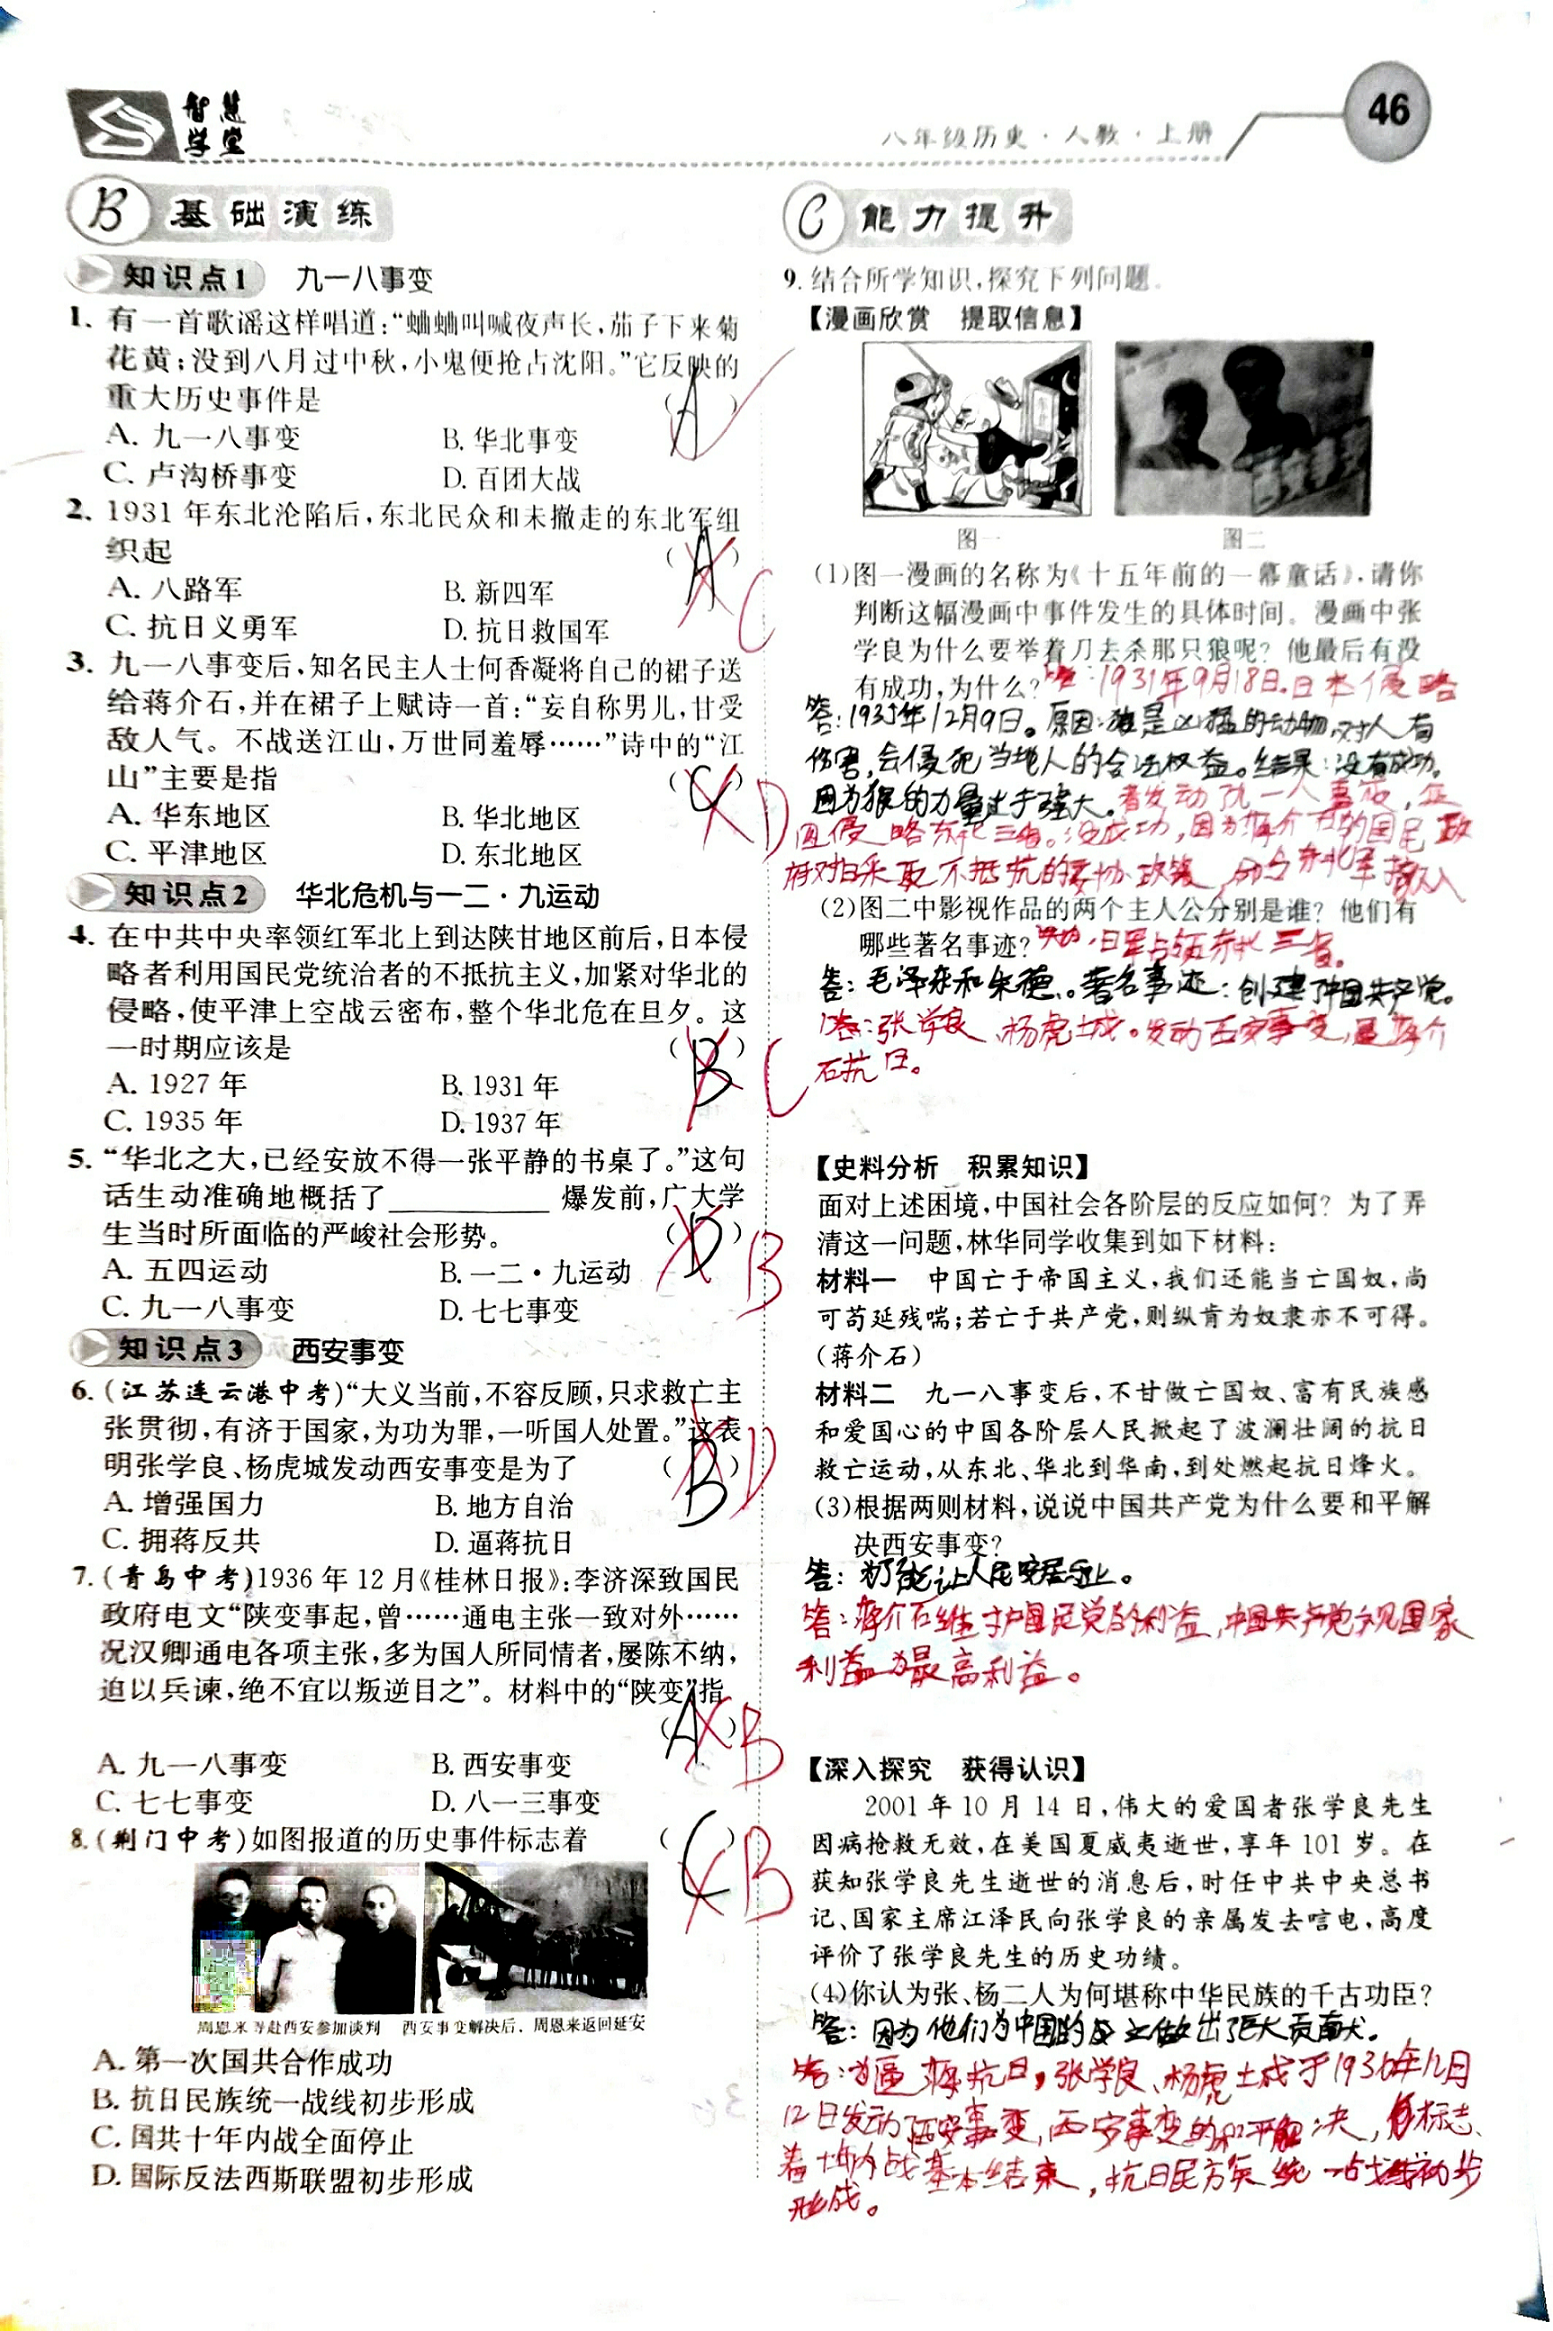 智慧学堂
八年级历史·人教·上册
46
B 基础演练
知识点1 九一八事变
1. 有一首歌谣这样唱道:“蛐蛐叫喊夜声长,茄子下来菊
花黄;没到八月过中秋,小鬼便抢占沈阳。”它反映的
重大历史事件是 (A)
A. 九一八事变 B. 华北事变
C. 卢沟桥事变 D. 百团大战
2. 1931年东北沦陷后,东北民众和未撤走的东北军组
织起 (A) C
A. 八路军 B. 新四军
C. 抗日义勇军 D. 抗日救国军
3. 九一八事变后,知名民主人士何香凝将自己的裙子送
给蒋介石,并在裙子上赋诗一首:“妄自称男儿,甘受
敌人气。不战送江山,万世同羞辱……”诗中的“江
山”主要是指 (C) D
A. 华东地区 B. 华北地区
C. 平津地区 D. 东北地区
知识点2 华北危机与一二·九运动
4. 在中共中央率领红军北上到达陕甘地区前后,日本侵
略者利用国民党统治者的不抵抗主义,加紧对华北的
侵略,使平津上空战云密布,整个华北危在旦夕。这
一时期应该是 (B) C
A. 1927年 B. 1931年
C. 1935年 D. 1937年
5. “华北之大,已经安放不得一张平静的书桌了。”这句
话生动准确地概括了________爆发前,广大学
生当时所面临的严峻社会形势。 (D) B
A. 五四运动 B. 一二·九运动
C. 九一八事变 D. 七七事变
知识点3 西安事变
6. (江苏连云港中考)“大义当前,不容反顾,只求救亡主
张贯彻,有济于国家,为功为罪,一听国人处置。”这表
明张学良、杨虎城发动西安事变是为了 (B) D
A. 增强国力 B. 地方自治
C. 拥蒋反共 D. 逼蒋抗日
7. (青岛中考)1936年12月《桂林日报》:李济深致国民
政府电文“陕变事起,曾……通电主张一致对外……
况汉卿通电各项主张,多为国人所同情者,屡陈不纳,
迫以兵谏,绝不宜以叛逆目之”。材料中的“陕变”指
(A) B
A. 九一八事变 B. 西安事变
C. 七七事变 D. 八一三事变
8. (荆门中考)如图报道的历史事件标志着 (C) B
周恩来等赴西安参加谈判 西安事变解决后,周恩来返回延安
A. 第一次国共合作成功
B. 抗日民族统一战线初步形成
C. 国共十年内战全面停止
D. 国际反法西斯联盟初步形成
C 能力提升
9. 结合所学知识,探究下列问题。
【漫画欣赏 提取信息】
图一 图二
(1)图一漫画的名称为《十五年前的一幕童话》,请你
判断这幅漫画中事件发生的具体时间。漫画中张
学良为什么要举着刀去杀那只狼呢?他最后有没
有成功,为什么?
答:1931年9月18日。日本侵略
答:1935年12月9日。原因:狼是凶猛的动物,对人有
伤害,会侵犯当地人的合法权益。结果:没有成功。
因为狼的力量过于强大。
者发动九一八事变,企
图侵略东北三省。没成功,因为蒋介石的国民政
府对日采取不抵抗的妥协政策,命令东北军撤入
(2)图二中影视作品的两个主人公分别是谁?他们有
哪些著名事迹?
日军占领东北三省。
答:毛泽东和朱德。著名事迹:创建了中国共产党。
答:张学良、杨虎城。发动西安事变,逼蒋介
石抗日。
【史料分析 积累知识】
面对上述困境,中国社会各阶层的反应如何?为了弄
清这一问题,林华同学收集到如下材料:
材料一 中国亡于帝国主义,我们还能当亡国奴,尚
可苟延残喘;若亡于共产党,则纵肯为奴隶亦不可得。
(蒋介石)
材料二 九一八事变后,不甘做亡国奴、富有民族感
和爱国心的中国各阶层人民掀起了波澜壮阔的抗日
救亡运动,从东北、华北到华南,到处燃起抗日烽火。
(3)根据两则材料,说说中国共产党为什么要和平解
决西安事变?
答:为了能让人民安居乐业。
答:蒋介石维护国民党的利益,中国共产党视国家
利益为最高利益。
【深入探究 获得认识】
2001年10月14日,伟大的爱国者张学良先生
因病抢救无效,在美国夏威夷逝世,享年101岁。在
获知张学良先生逝世的消息后,时任中共中央总书
记、国家主席江泽民向张学良的亲属发去唁电,高度
评价了张学良先生的历史功绩。
(4)你认为张、杨二人为何堪称中华民族的千古功臣?
答:因为他们为中国的成立做出了巨大贡献。
答:为逼蒋抗日,张学良、杨虎城于1936年12月
12日发动西安事变,西安事变的和平解决,标志
着十年内战基本结束,抗日民族统一战线初步
形成。